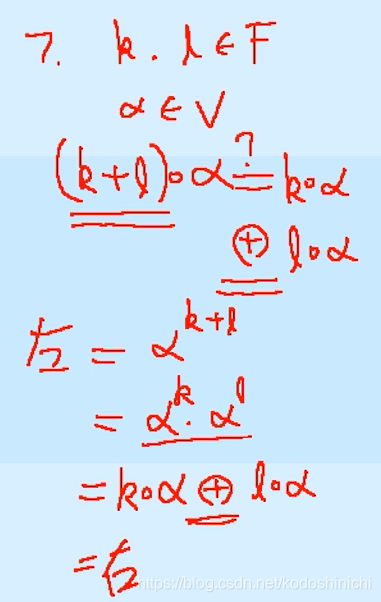 7. k. l ∈ F
α ∈ V
(k+l)∘α ≟ k∘α
⊕ l∘α
= α^{k+l}
= α^k · α^l
= k∘α ⊕ l∘α
=
https://blog.csdn.net/kodoshinichi